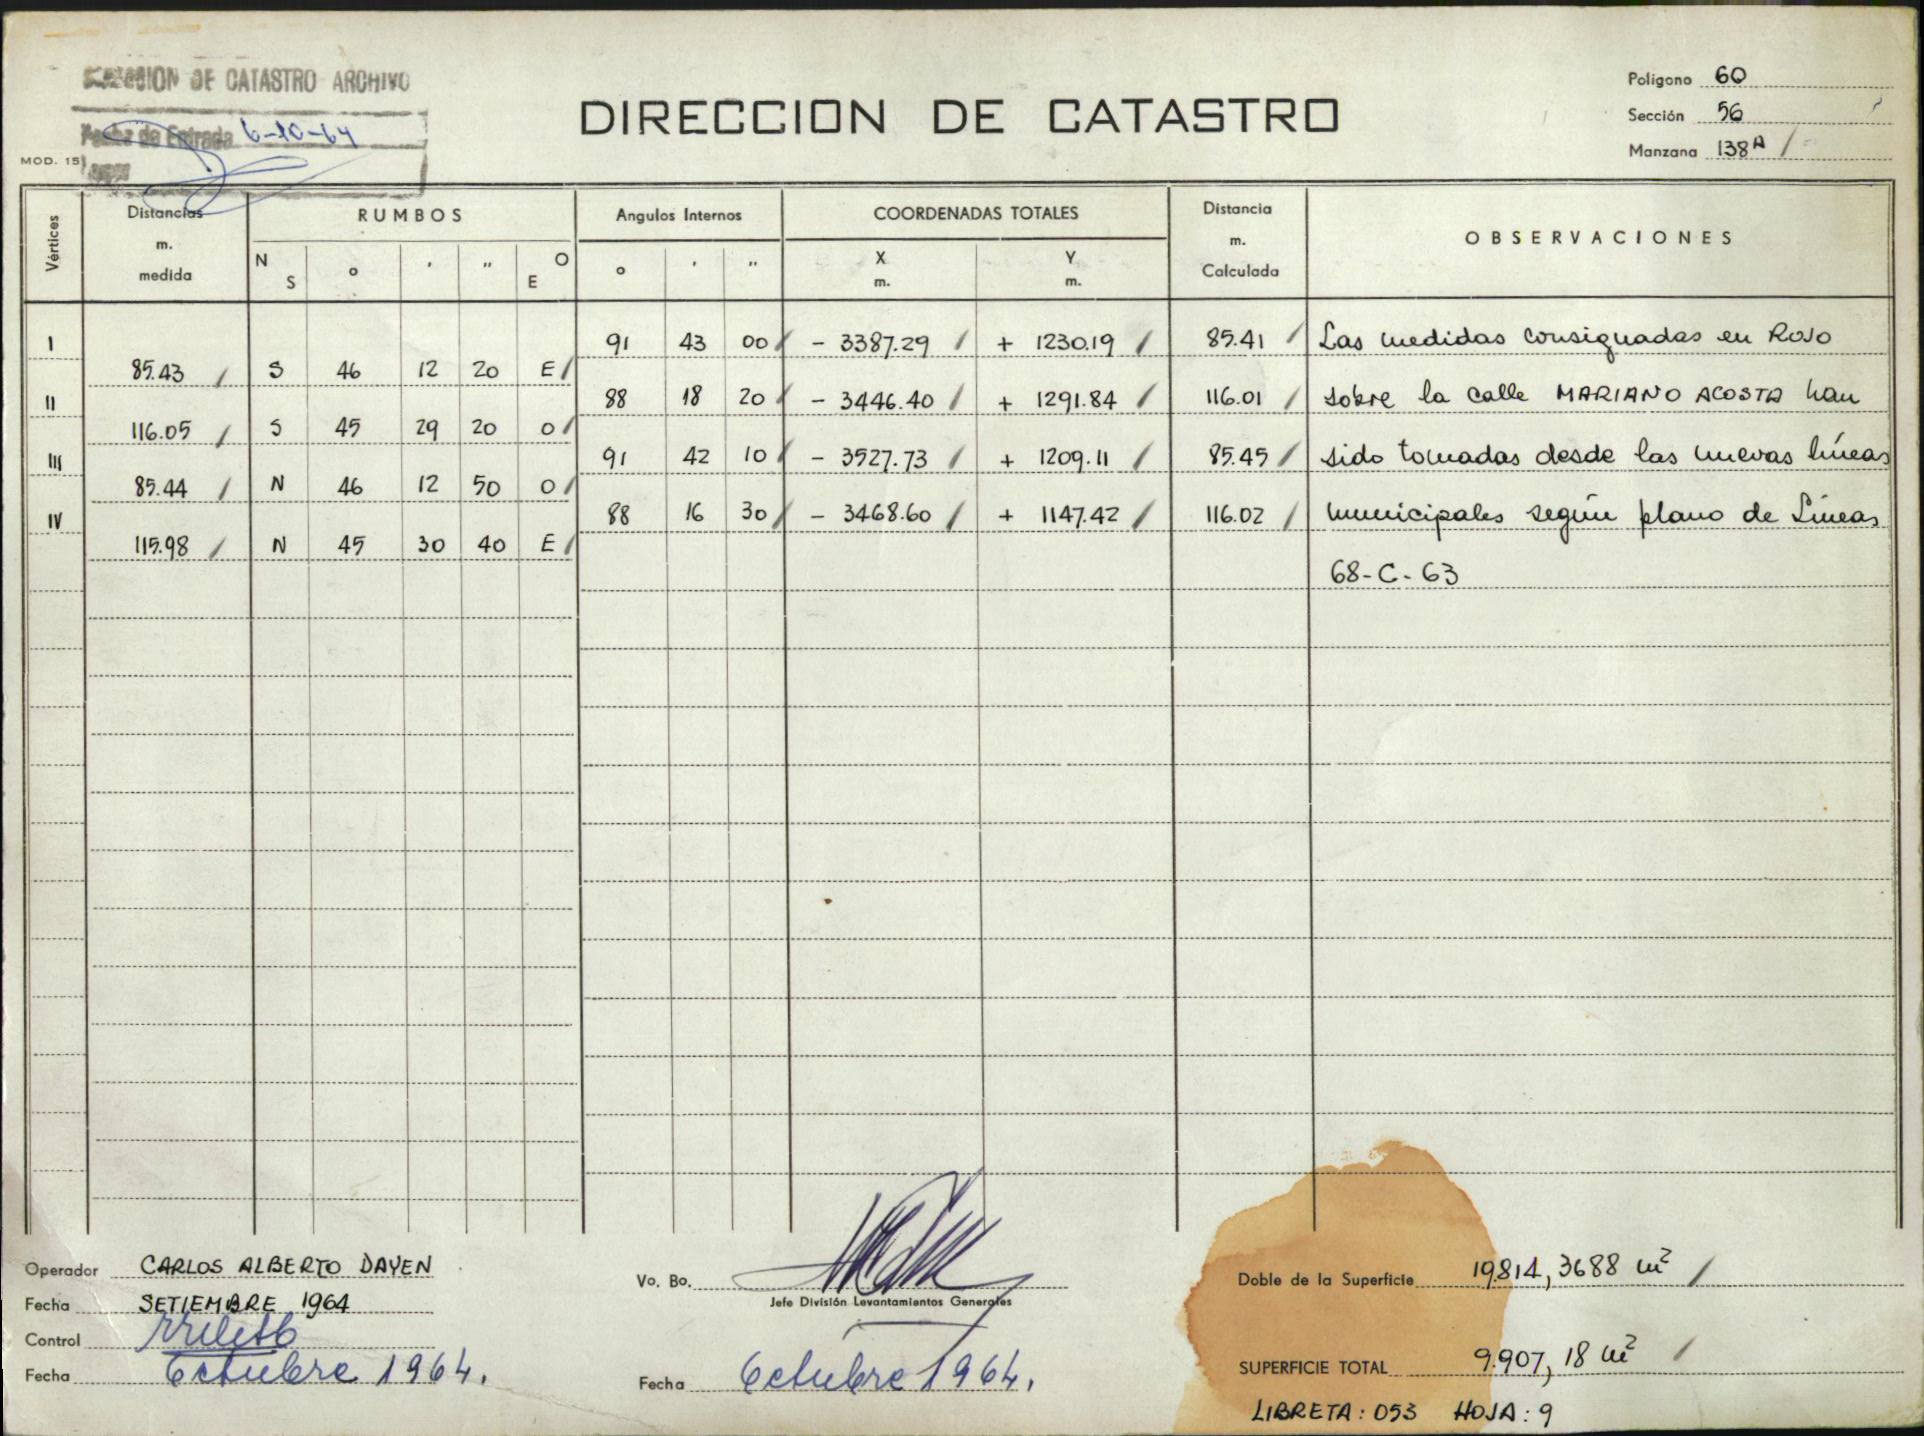 DIRECCION DE CATASTRO ARCHIVO
Fecha de Entrada 6-10-64
MOD. 15
DIRECCION DE CATASTRO
Polígono 60
Sección 56
Manzana 138A
Vértices
Distancias
m.
medida
RUMBOS
N S ° ' " E O
Angulos Internos
° ' "
COORDENADAS TOTALES
X m.
Y m.
Distancia
m.
Calculada
OBSERVACIONES
I 91 43 00 - 3387.29 + 1230.19 85.41 Las medidas consignadas en ROJO
85.43 S 46 12 20 E
II 88 18 20 - 3446.40 + 1291.84 116.01 sobre la calle MARIANO ACOSTA han
116.05 S 45 29 20 O
III 91 42 10 - 3527.73 + 1209.11 85.45 sido tomadas desde las nuevas líneas
85.44 N 46 12 50 O
IV 88 16 30 - 3468.60 + 1147.42 116.02 municipales según plano de Líneas
115.98 N 45 30 40 E
68-C-63
Operador CARLOS ALBERTO DAYEN
Fecha SETIEMBRE 1964
Control
Fecha Octubre 1964.
Vo. Bo.
Jefe División Levantamientos Generales
Fecha Octubre 1964.
Doble de la Superficie 19.814,3688 m²
SUPERFICIE TOTAL 9.907,18 m²
LIBRETA: 053 HOJA: 9